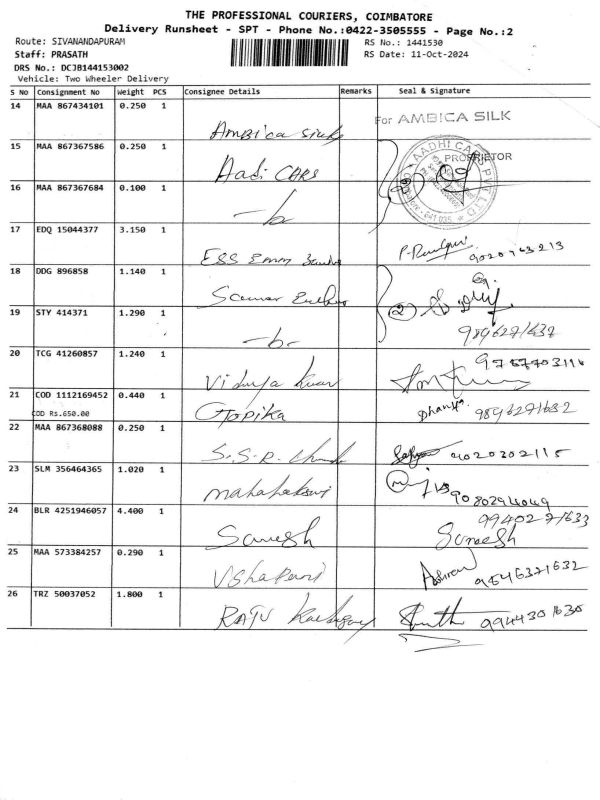 THE PROFESSIONAL COURIERS, COIMBATORE
Delivery Runsheet - SPT - Phone No.:0422-3505555 - Page No.:2
Route: SIVANANDAPURAM RS No.: 1441530
Staff: PRASATH RS Date: 11-Oct-2024
DRS No.: DCJB144153002
Vehicle: Two Wheeler Delivery
S No Consignment No Weight PCS Consignee Details Remarks Seal & Signature
14 MAA 867434101 0.250 1
For AMBICA SILK
Ambica
15 MAA 867367586 0.250 1
AADHI CARS PVT LTD
PROPRIETOR
Aadi CARS
641 035
16 MAA 867367684 0.100 1
17 EDQ 15044377 3.150 1
ESS Emm
18 DDG 896858 1.140 1
2
19 STY 414371 1.290 1
9896271632
20 TCG 41260857 1.240 1
Vidhya
21 COD 1112169452 0.440 1
COD Rs.650.00 Gopika 9896271632
22 MAA 867368088 0.250 1
S.S.R. 9020302115
23 SLM 356464365 1.020 1
24 BLR 4251946057 4.400 1
9940271633
Suresh Suresh
25 MAA 573384257 0.290 1
Usha Rani 9546321632
26 TRZ 50037052 1.800 1
RAJU 9944301630